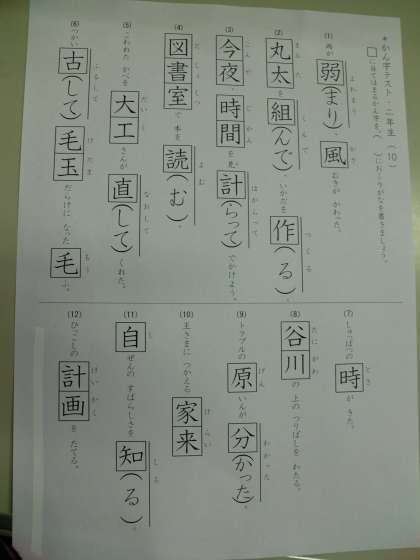 ＊かん字テスト・二年生（10
□に当てはまるかん字を、（ ）におくりがなを書きましょう。
(1) 雨が弱(まり)、風むきが かわった。
よわまり かざ
(2) 丸太を組(んで)、いかだを作(る)。
まるた くんで つくる
(3) 今夜、時間を見計(らって)でかけよう。
こんや じかん はからって
(4) 図書室で 本を読(む)。
としょしつ よむ
(5) こわれた かべを大工さんが直(して)くれた。
だいく なおして
(6) つかい古(して)毛玉だらけに なった毛ふ。
ふるして けだま もう
(7) しゅっぱつの時がきた。
とき
(8) 谷川の 上の つりばしを わたる。
たにがわ
(9) トラブルの原いんが分(かった)。
げん わかった
(10) 王さまに つかえる家来
けらい
(11) 自ぜんの すばらしさを知(る)。
し しる
(12) ひっこしの計画を たてる。
けいかく